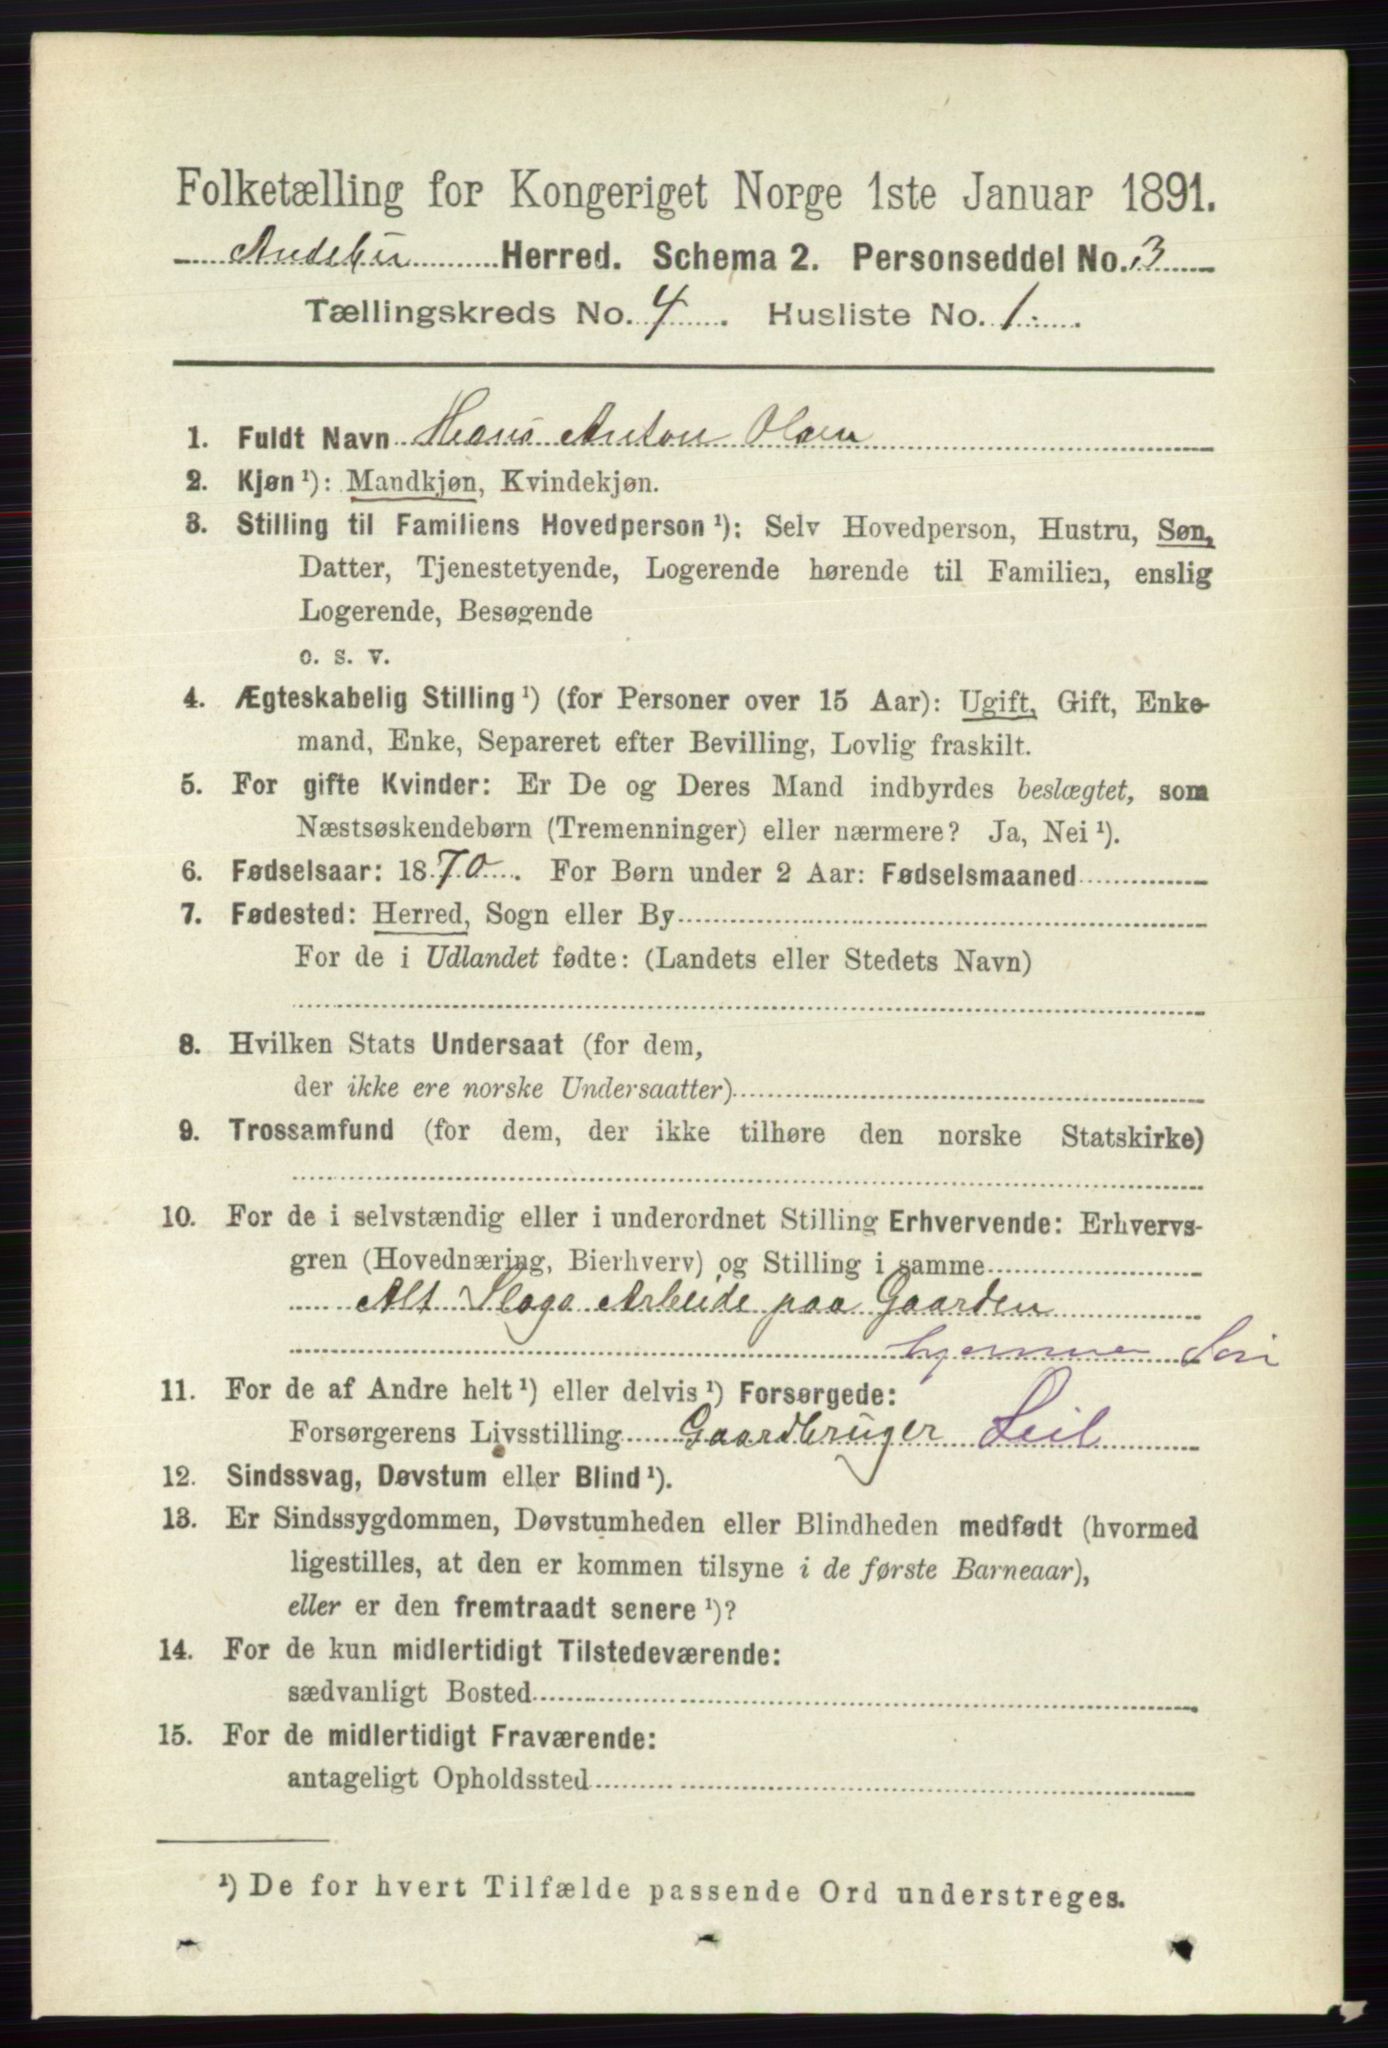 Folketælling for Kongeriget Norge 1ste Januar 1891.
Andebu Herred. Schema 2. Personseddel No. 3
Tællingskreds No. 4. Husliste No. 1.
1. Fuldt Navn Hans Anton Olsen
2. Kjøn ¹): Mandkjøn, Kvindekjøn.
3. Stilling til Familiens Hovedperson ¹): Selv Hovedperson, Hustru, Søn,
Datter, Tjenestetyende, Logerende hørende til Familien, enslig
Logerende, Besøgende
o. s. v.
4. Ægteskabelig Stilling ¹) (for Personer over 15 Aar): Ugift, Gift, Enke-
mand, Enke, Separeret efter Bevilling, Lovlig fraskilt.
5. For gifte Kvinder: Er De og Deres Mand indbyrdes beslægtet, som
Næstsøskendebørn (Tremenninger) eller nærmere? Ja, Nei ¹).
6. Fødselsaar: 1870. For Børn under 2 Aar: Fødselsmaaned
7. Fødested: Herred, Sogn eller By
For de i Udlandet fødte: (Landets eller Stedets Navn)
8. Hvilken Stats Undersaat (for dem,
der ikke ere norske Undersaatter)
9. Trossamfund (for dem, der ikke tilhøre den norske Statskirke)
10. For de i selvstændig eller i underordnet Stilling Erhvervende: Erhvervs-
gren (Hovednæring, Bierhverv) og Stilling i samme
Alt Slags Arbeide paa Gaarden
hjemme
11. For de af Andre helt ¹) eller delvis ¹) Forsørgede:
Forsørgerens Livsstilling Gaardbruger Seil
12. Sindssvag, Døvstum eller Blind ¹).
13. Er Sindssygdommen, Døvstumheden eller Blindheden medfødt (hvormed
ligestilles, at den er kommen tilsyne i de første Barneaar),
eller er den fremtraadt senere ¹)?
14. For de kun midlertidigt Tilstedeværende:
sædvanligt Bosted
15. For de midlertidigt Fraværende:
antageligt Opholdssted
¹) De for hvert Tilfælde passende Ord understreges.